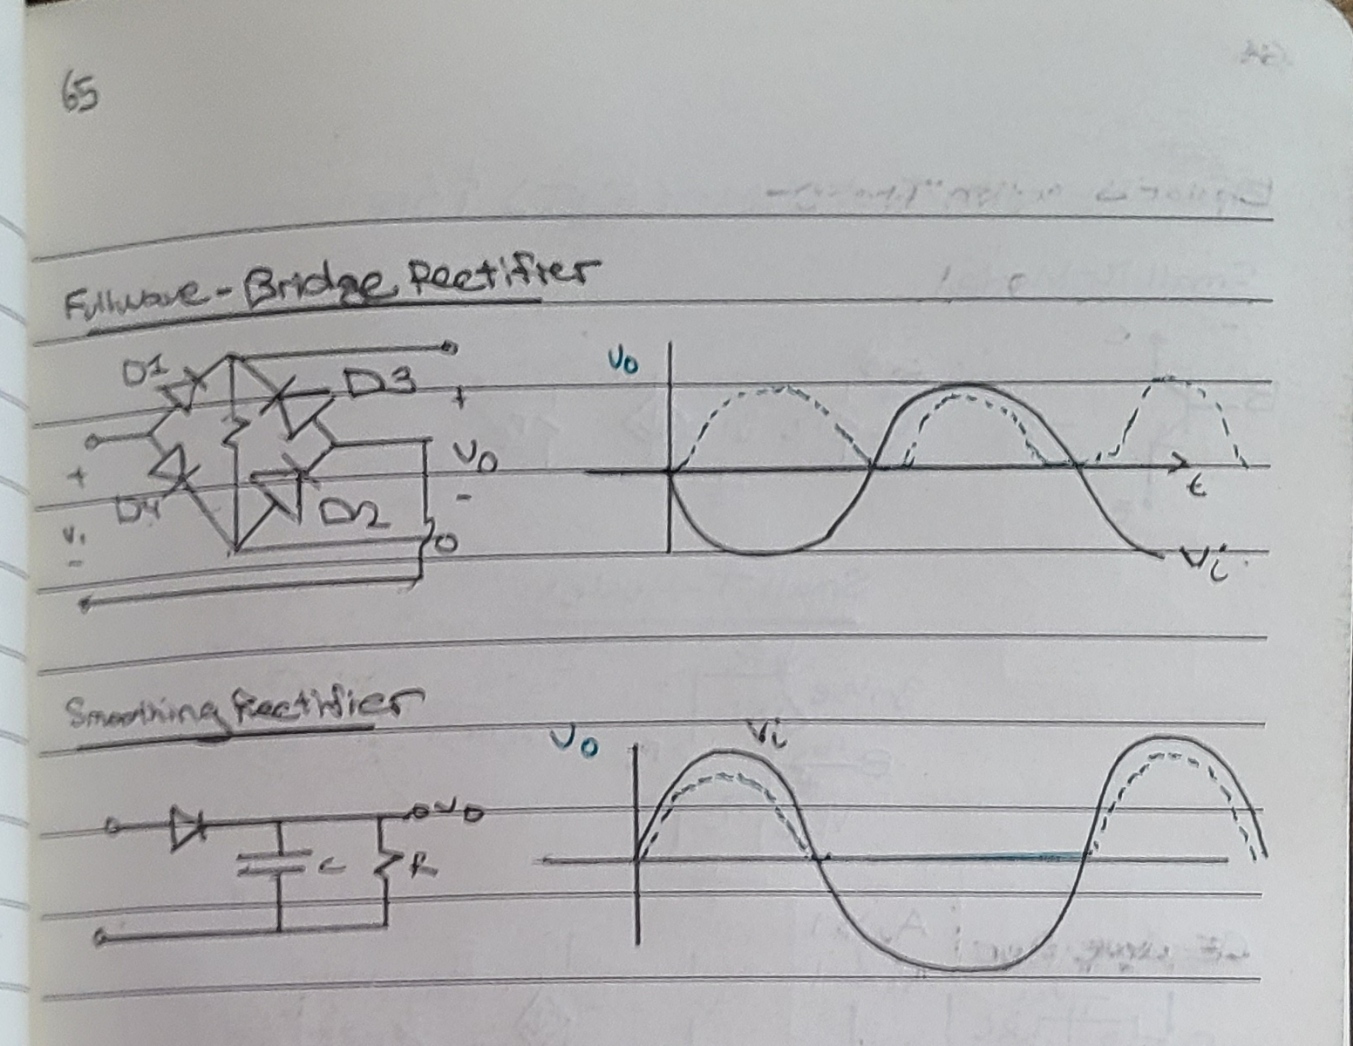 65
Fullwave - Bridge Rectifier
D1
D3
+
Vo
-
+
D4
D2
Vi
-
Vo
t
Vi
Smoothing Rectifier
Vo
C
R
Vo
Vi